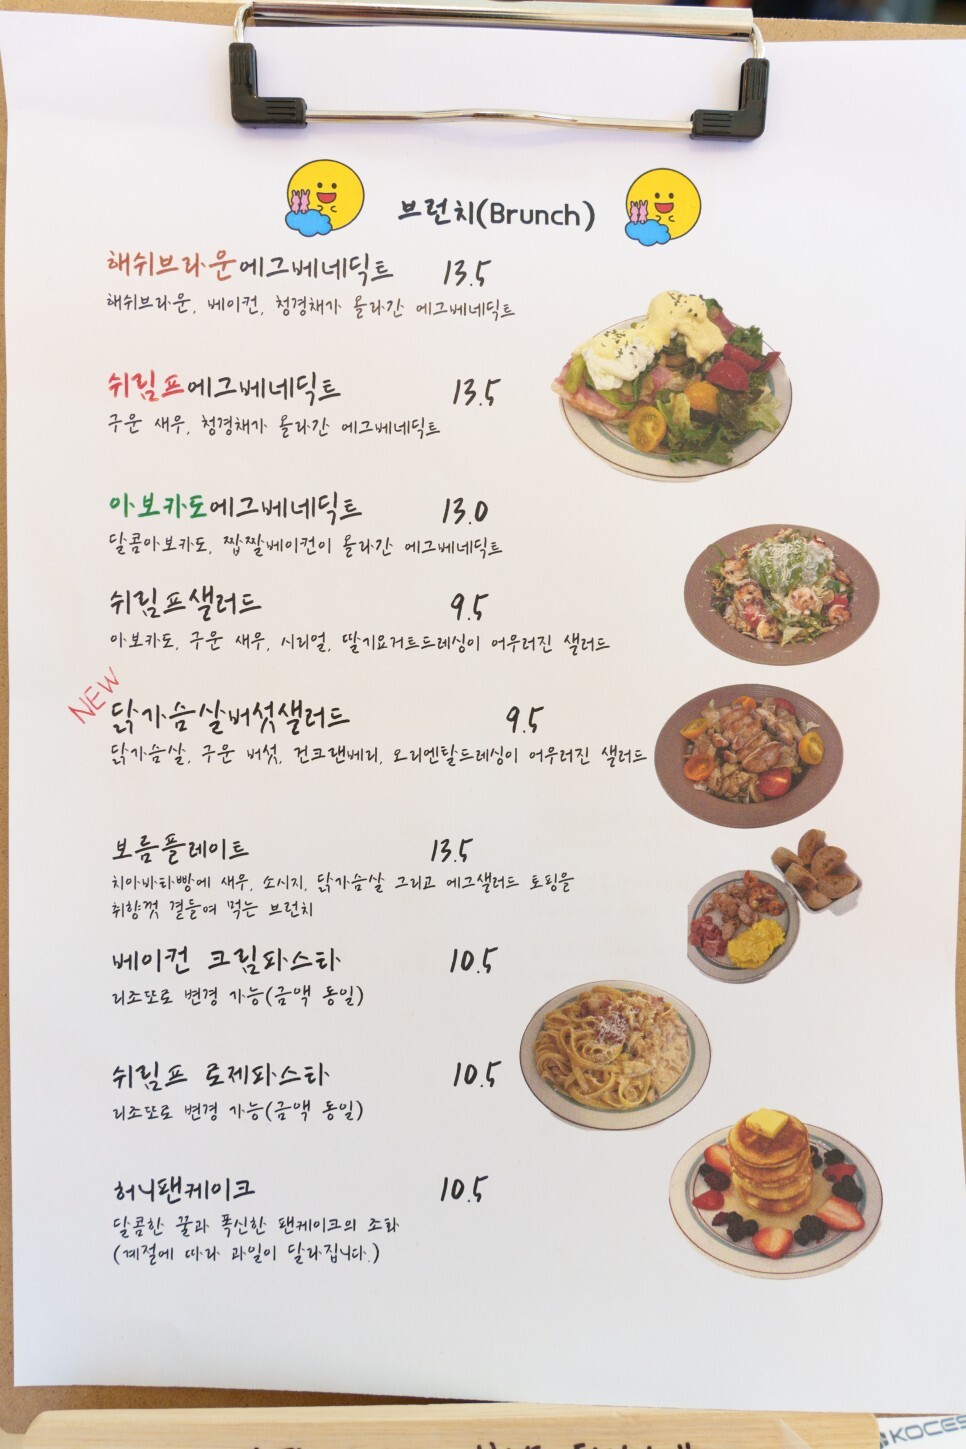 브런치(Brunch)
해쉬브라운에그베네딕트 13.5
해쉬브라운, 베이컨, 청경채가 올라간 에그베네딕트
쉬림프에그베네딕트 13.5
구운 새우, 청경채가 올라간 에그베네딕트
아보카도에그베네딕트 13.0
달콤아보카도, 짭짤베이컨이 올라간 에그베네딕트
쉬림프샐러드 9.5
아보카도, 구운 새우, 시리얼, 딸기요거트드레싱이 어우러진 샐러드
NEW
닭가슴살버섯샐러드 9.5
닭가슴살, 구운 버섯, 건크랜베리, 오리엔탈드레싱이 어우러진 샐러드
보름플레이트 13.5
치아바타빵에 새우, 소시지, 닭가슴살 그리고 에그샐러드 토핑을
취향껏 곁들여 먹는 브런치
베이컨 크림파스타 10.5
리조또로 변경 가능(금액 동일)
쉬림프 로제파스타 10.5
리조또로 변경 가능(금액 동일)
허니팬케이크 10.5
달콤한 꿀과 폭신한 팬케이크의 조화
(계절에 따라 과일이 달라집니다.)
KOCES